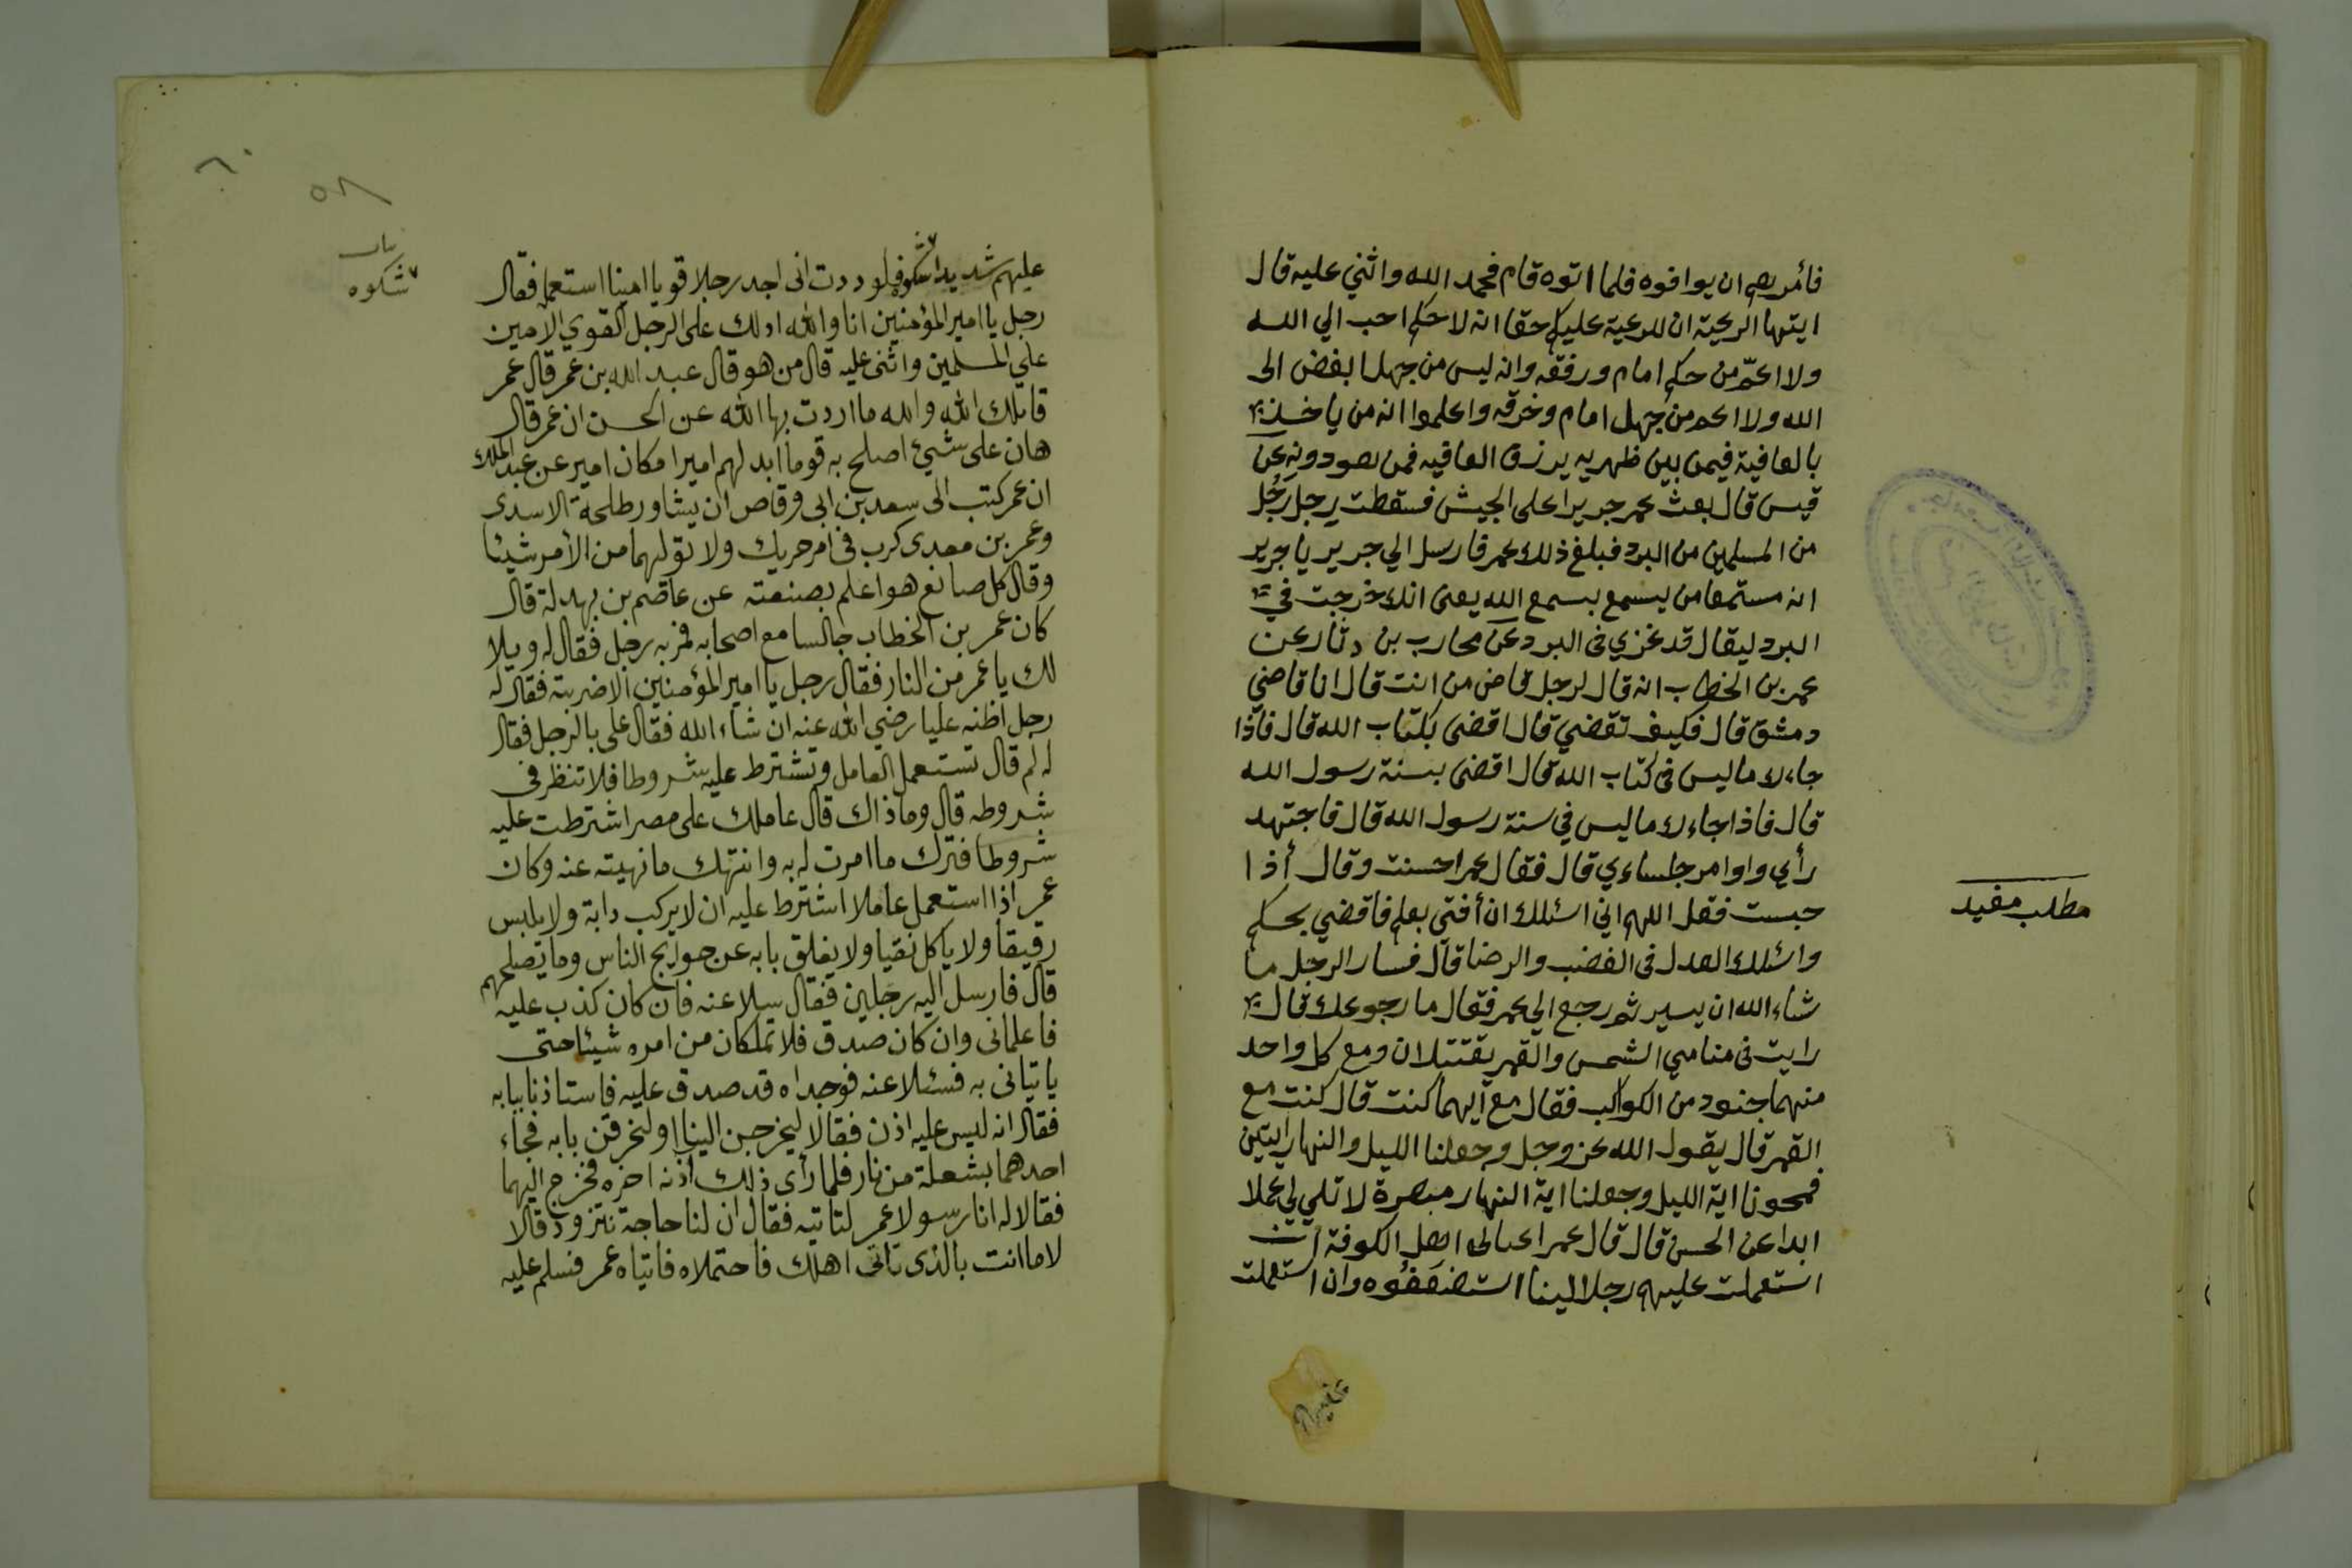 فأمرهم ان يوافوه فلما اتوه قام فحمد الله واثني عليه قال
ايتها الرعية ان للرعية عليكم حقا انه لا حكم احب الي الله
ولا اعمّ من حكم امام ورفقه وانه ليس من جهل ابغض الى
الله ولا اعم من جهل امام وخرقه واعلموا انه من ياخذ
بالعافية فيمن بين ظهريه يرزق العافيه فمن هو دونه عن
قيس قال بعث عمر جريرا على الجيش فسقطت رجل رجُل
من المسلمين من البرد فبلغ ذلك عمر فارسل الي جرير يا جرير
انه مستمعا من يسمع يسمع الله يعنى انك خرجت في
البرد ليقال قد غزي فى البرد عن محارب بن دثار عن
عمر بن الخطاب انه قال لرجل قاض من انت قال انا قاضي
دمشق قال فكيف تقضي قال اقضى بكتاب الله قال فاذا
جاءك ما ليس فى كتاب الله قال اقضى بسنة رسول الله
قال فاذا جاءك ما ليس في سنة رسول الله قال فاجتهد
رأي واوامر جلساءي قال فقال عمر احسنت وقال أذا
جبست فقل اللهم اني اسئلك ان أفتى بعلم فاقضي بحكم
واسئلك العدل فى الغضب والرضا قال فسار الرجل ما
شاء الله ان يسير ثم رجع الي عمر فقال ما رجوعك قال
رايت فى منامي الشمس والقمر يقتتلان ومع كل واحد
منهما جنود من الكواكب فقال مع ايهما كنت قال كنت مع
القمر قال يقول الله عز وجل وجعلنا الليل والنهار ايتين
فمحونا اية الليل وجعلنا اية النهار مبصرة لا تلي لي عملا
ابدا عن الحسن قال قال عمر اعيالى اهل الكوفة ان
استعملت عليهم رجلا لينا استضعفوه وان استعملت
مطلب مفيد
عليهم شديدا شكوه فلوددت انى اجد رجلا قويا امينا استعمل فقال
رجل يا امير المؤمنين انا والله ادلك على الرجل القوي الامين
علي المسلمين واثنى عليه قال من هو قال عبد الله بن عمر قال عمر
قاتلك الله والله ما اردت بها الله عن الحسن ان عمر قال
هان على شيئ اصلح به قوما ابدلهم اميرا مكان امير عن عبد الملك
ان عمر كتب الى سعد بن ابى وقاص ان يشاور طلحة الاسدى
وعمر بن معدى كرب فى امر حربك ولا تولهما من الأمر شيئا
وقال كل صانع هو اعلم بصنعته عن عاصم بن بهدلة قال
كان عمر بن الخطاب جالسا مع اصحابه فمر به رجل فقال له ويلا
لك يا عمر من النار فقال رجل يا امير المؤمنين الا ضربته فقال له
رجل اظنه عليا رضي الله عنه ان شاء الله فقال على بالرجل فقال
له لم قال تستعمل العامل وتشترط عليه شروطا فلا تنظر فى
شروطه قال وما ذاك قال عاملك على مصر اشترطت عليه
شروطا فترك ما امرت له به وانتهك ما نهيته عنه وكان
عمر اذا استعمل عاملا اشترط عليه ان لا يركب دابة ولا يلبس
رقيقا ولا ياكل نقيا ولا يغلق بابه عن حوايج الناس وما يصلحهم
قال فارسل اليه رجلين فقال سلا عنه فان كان كذب عليه
فاعلمانى وان كان صدق فلا تملكان من امره شيئا حتى
ياتيانى به فسئلا عنه فوجداه قد صدق عليه فاستاذنا ببابه
فقال انه ليس عليه اذن فقالا ليخرجن الينا او لنحرقن بابه فجاء
احدهما بشعلة من نار فلما رأى ذلك اذنه اخبره فخرج اليهما
فقالا له انا رسولا عمر لتاتيه فقال ان لنا حاجة نتزود قالا
لا ما انت بالذى تاتى اهلك فاحتملاه فاتياه عمر فسلم عليه
شكوه
٥٨
٦٠